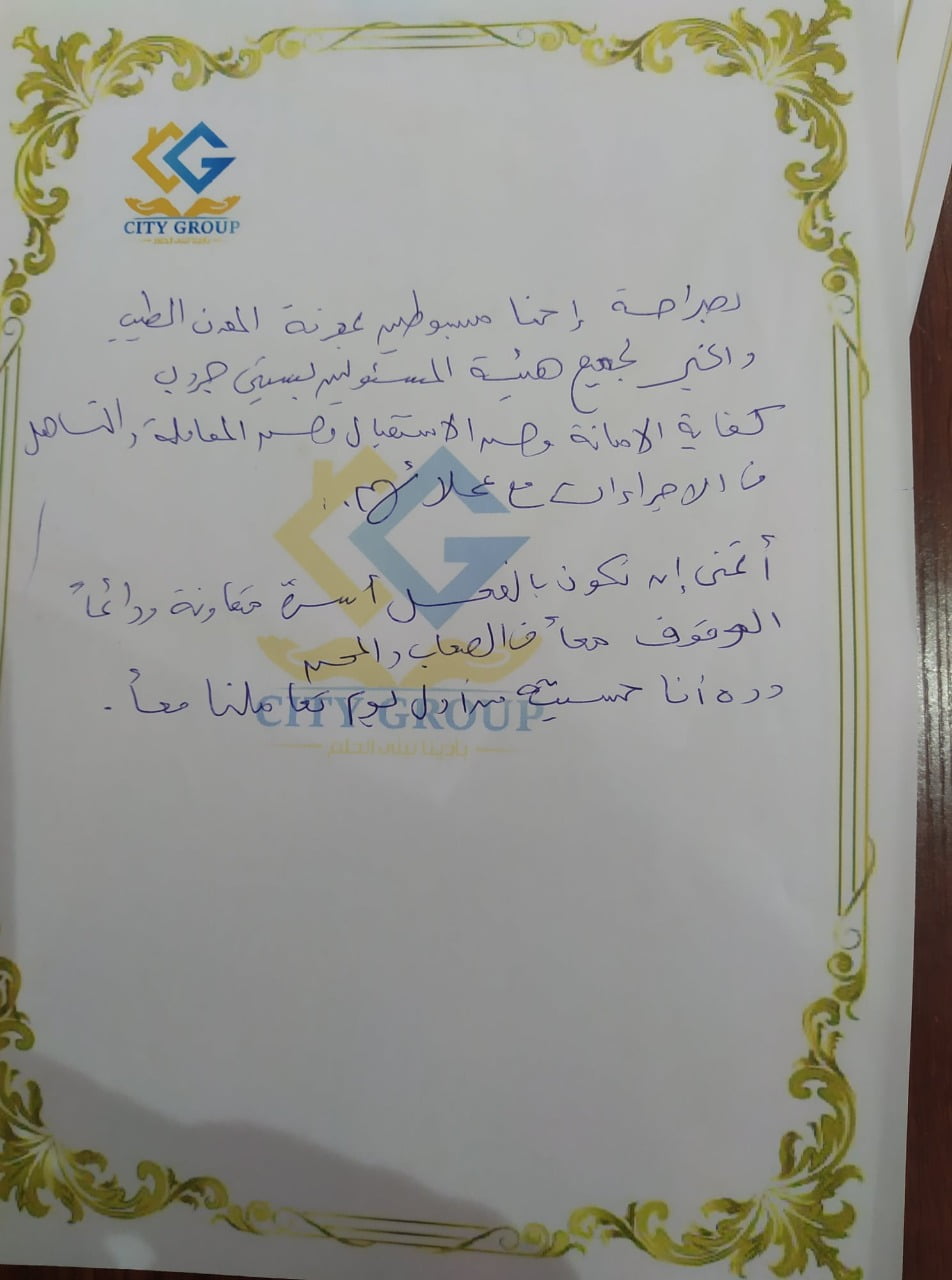 CITY GROUP
بأدينا نبنى الحلم
بصراحة إحنا مبسوطين بمعرفة المعدن الطيب
والخير لجميع هيئة المسئولين بسيتى جروب
كفاية الامانة وحسن الاستقبال وحسن المعاملة والتساهل
فى الاجراءات مع عملائهم..
أتمنى إن نكون بالفعل أسرة متعاونة ودائماً
الوقوف معاً فى الصعاب والمحن
وده أنا حسيته من أول يوم تعاملنا معاً.
CITY GROUP
بأدينا نبنى الحلم